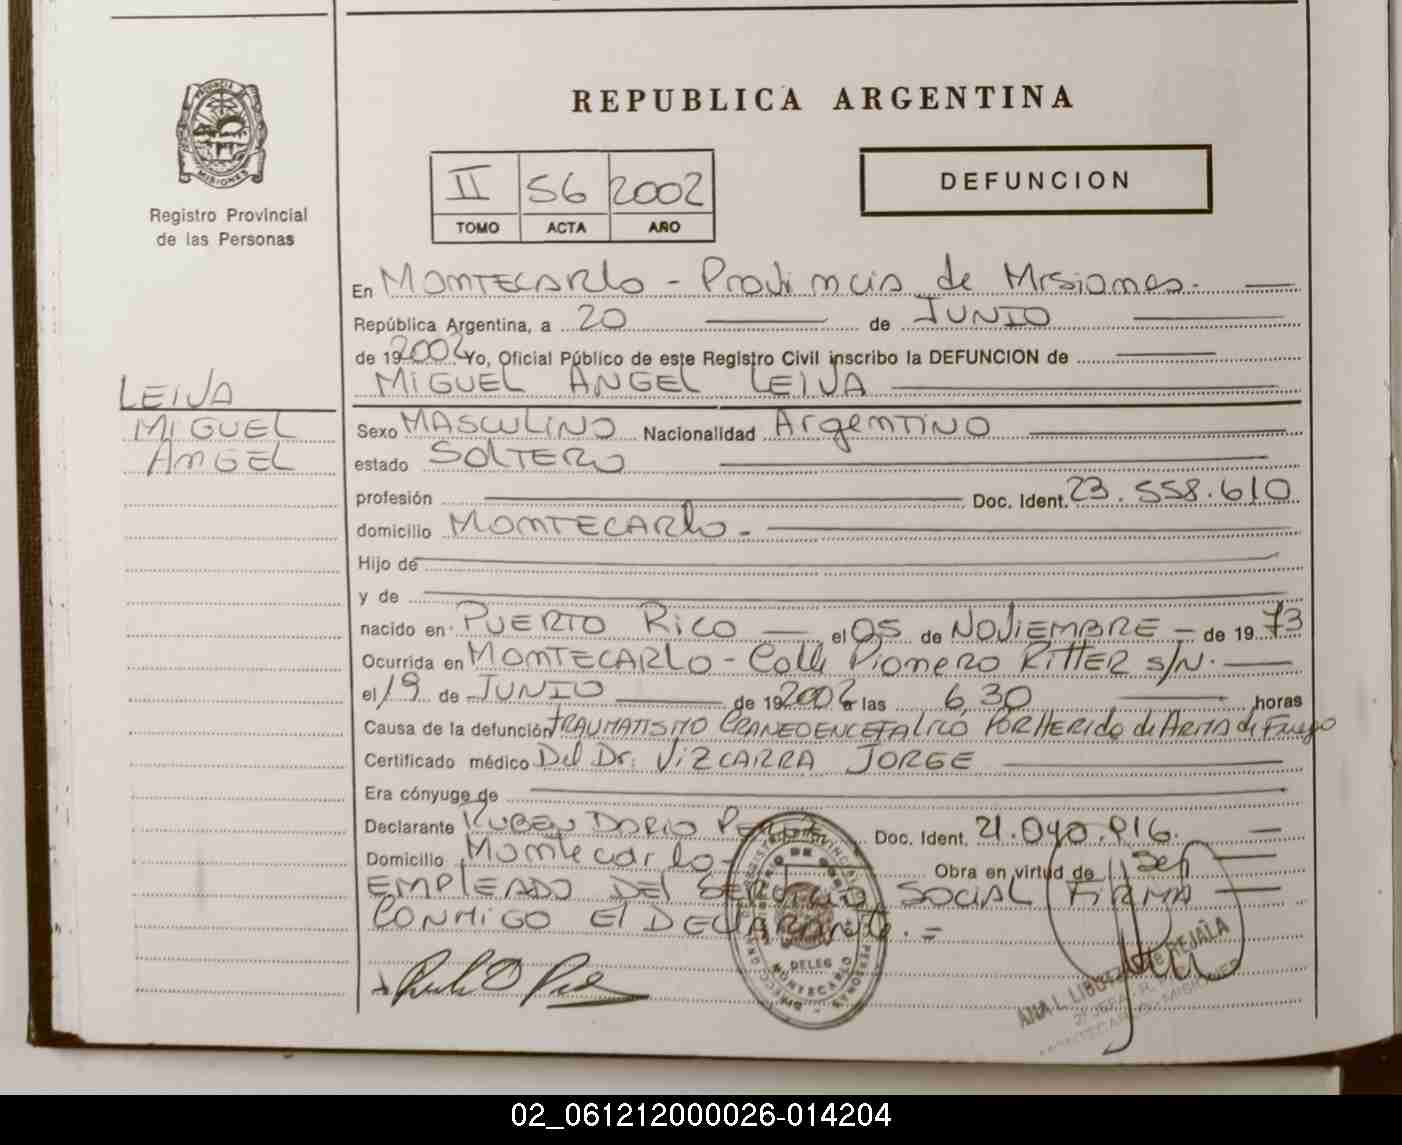 REPUBLICA ARGENTINA
PROVINCIA DE MISIONES
Registro Provincial
de las Personas
II 56 2002
TOMO ACTA AÑO
DEFUNCION
En MONTECARLO - Provincia de Misiones.
República Argentina, a 20 de JUNIO
de 192002 Yo, Oficial Público de este Registro Civil inscribo la DEFUNCION de
MIGUEL ANGEL LEIVA
LEIVA
MIGUEL
ANGEL
Sexo MASCULINO Nacionalidad Argentino
estado SOLTERO
profesión Doc. Ident. 23.558.610
domicilio MONTECARLO.
Hijo de
y de
nacido en PUERTO RICO el 05 de NOVIEMBRE - de 1973
Ocurrida en MONTECARLO - Calle Pionero RITTER s/N.
el 19 de JUNIO de 192002 a las 6,30 horas
Causa de la defunción TRAUMATISMO CRANEOENCEFALICO POR HERIDA de ARMA de Fuego
Certificado médico Del Dr. VIZCARRA JORGE
Era cónyuge de
Declarante RUBEN DARIO Doc. Ident. 21.040.916.
Domicilio Montecarlo- Obra en virtud de Ser
EMPLEADO DEL SERVICIO SOCIAL FIRMA
CONMIGO El DECLARANTE. =
DELEG
MONTECARLO
ANA L.
02_061212000026-014204